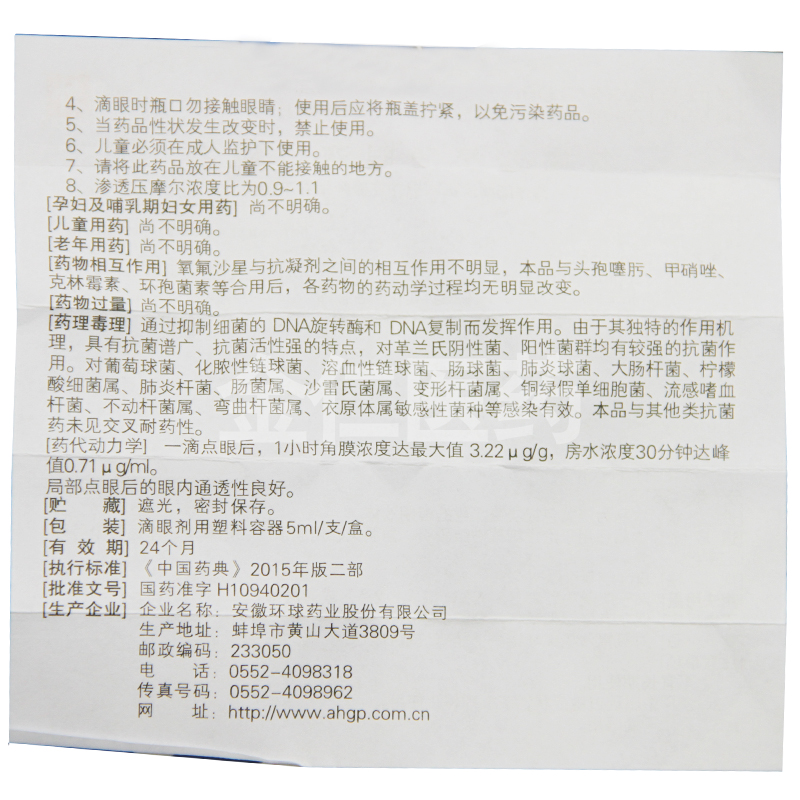 4、滴眼时瓶口勿接触眼睛；使用后应将瓶盖拧紧，以免污染药品。
5、当药品性状发生改变时，禁止使用。
6、儿童必须在成人监护下使用。
7、请将此药品放在儿童不能接触的地方。
8、渗透压摩尔浓度比为0.9~1.1
[孕妇及哺乳期妇女用药] 尚不明确。
[儿童用药] 尚不明确。
[老年用药] 尚不明确。
[药物相互作用] 氧氟沙星与抗凝剂之间的相互作用不明显，本品与头孢噻肟、甲硝唑、
克林霉素、环孢菌素等合用后，各药物的药动学过程均无明显改变。
[药物过量] 尚不明确。
[药理毒理] 通过抑制细菌的 DNA旋转酶和 DNA复制而发挥作用。由于其独特的作用机
理，具有抗菌谱广、抗菌活性强的特点，对革兰氏阴性菌、阳性菌群均有较强的抗菌作
用。对葡萄球菌、化脓性链球菌、溶血性链球菌、肠球菌、肺炎球菌、大肠杆菌、柠檬
酸细菌属、肺炎杆菌、肠菌属、沙雷氏菌属、变形杆菌属、铜绿假单细胞菌、流感嗜血
杆菌、不动杆菌属、弯曲杆菌属、衣原体属敏感性菌种等感染有效。本品与其他类抗菌
药未见交叉耐药性。
[药代动力学] 一滴点眼后，1小时角膜浓度达最大值 3.22μg/g，房水浓度30分钟达峰
值0.71μg/ml。
局部点眼后的眼内通透性良好。
[贮 藏] 遮光，密封保存。
[包 装] 滴眼剂用塑料容器5ml/支/盒。
[有 效 期] 24个月
[执行标准] 《中国药典》2015年版二部
[批准文号] 国药准字 H10940201
[生产企业] 企业名称：安徽环球药业股份有限公司
生产地址：蚌埠市黄山大道3809号
邮政编码：233050
电 话：0552-4098318
传真号码：0552-4098962
网 址：http://www.ahgp.com.cn